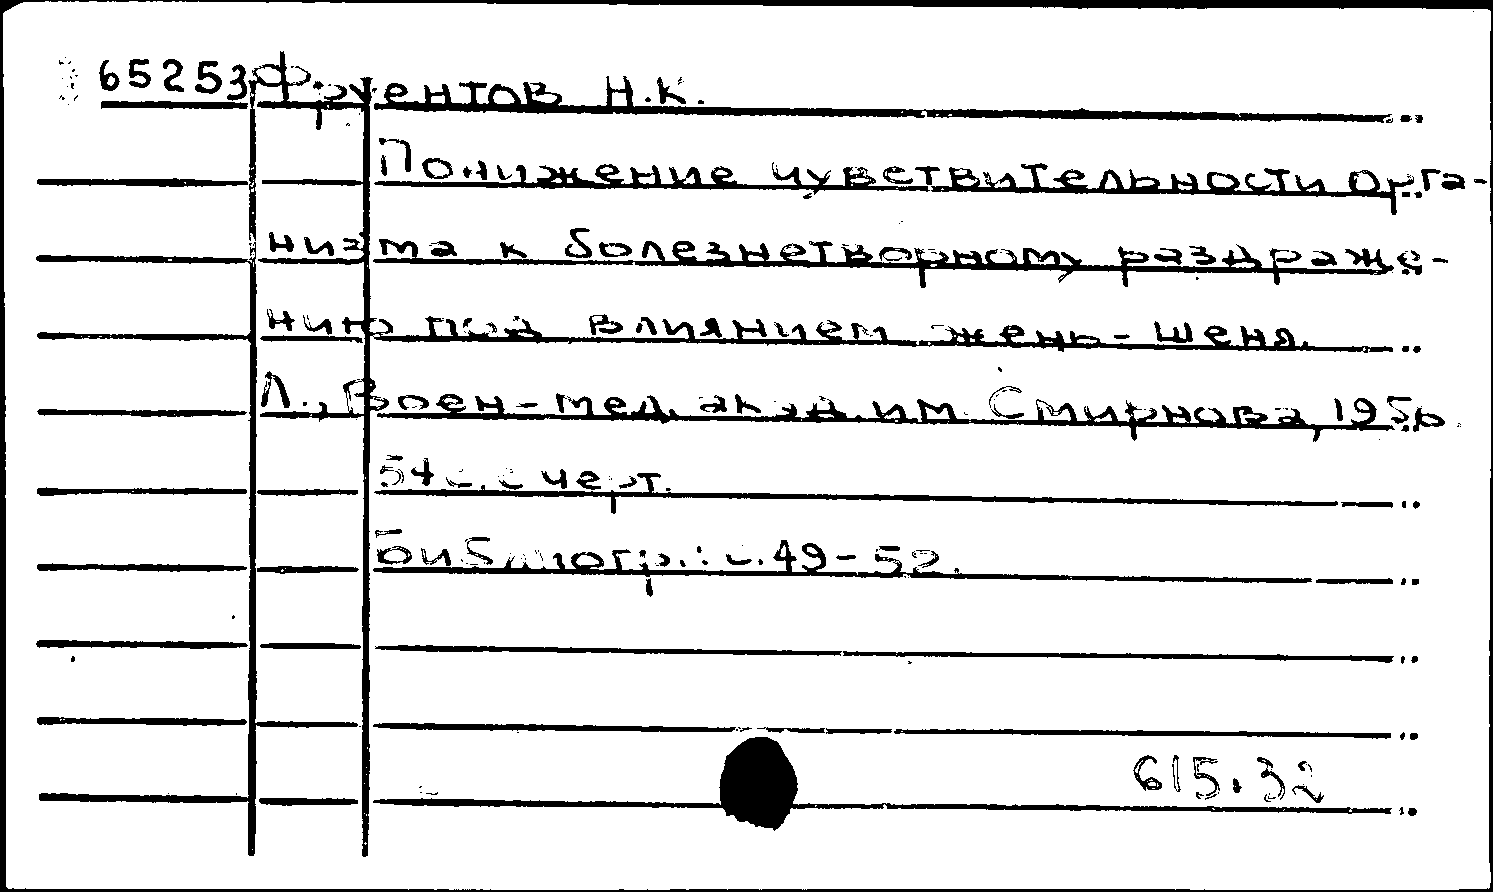 65253 Фруентов Н.К.
Понижение чувствительности орга-
низма к болезнетворному раздраже-
нию под влиянием жень-шеня.
Л., Воен-мед. акад. им. Смирнова, 1956.
54 с. с черт.
Библиогр.: с. 49-52.
615.32